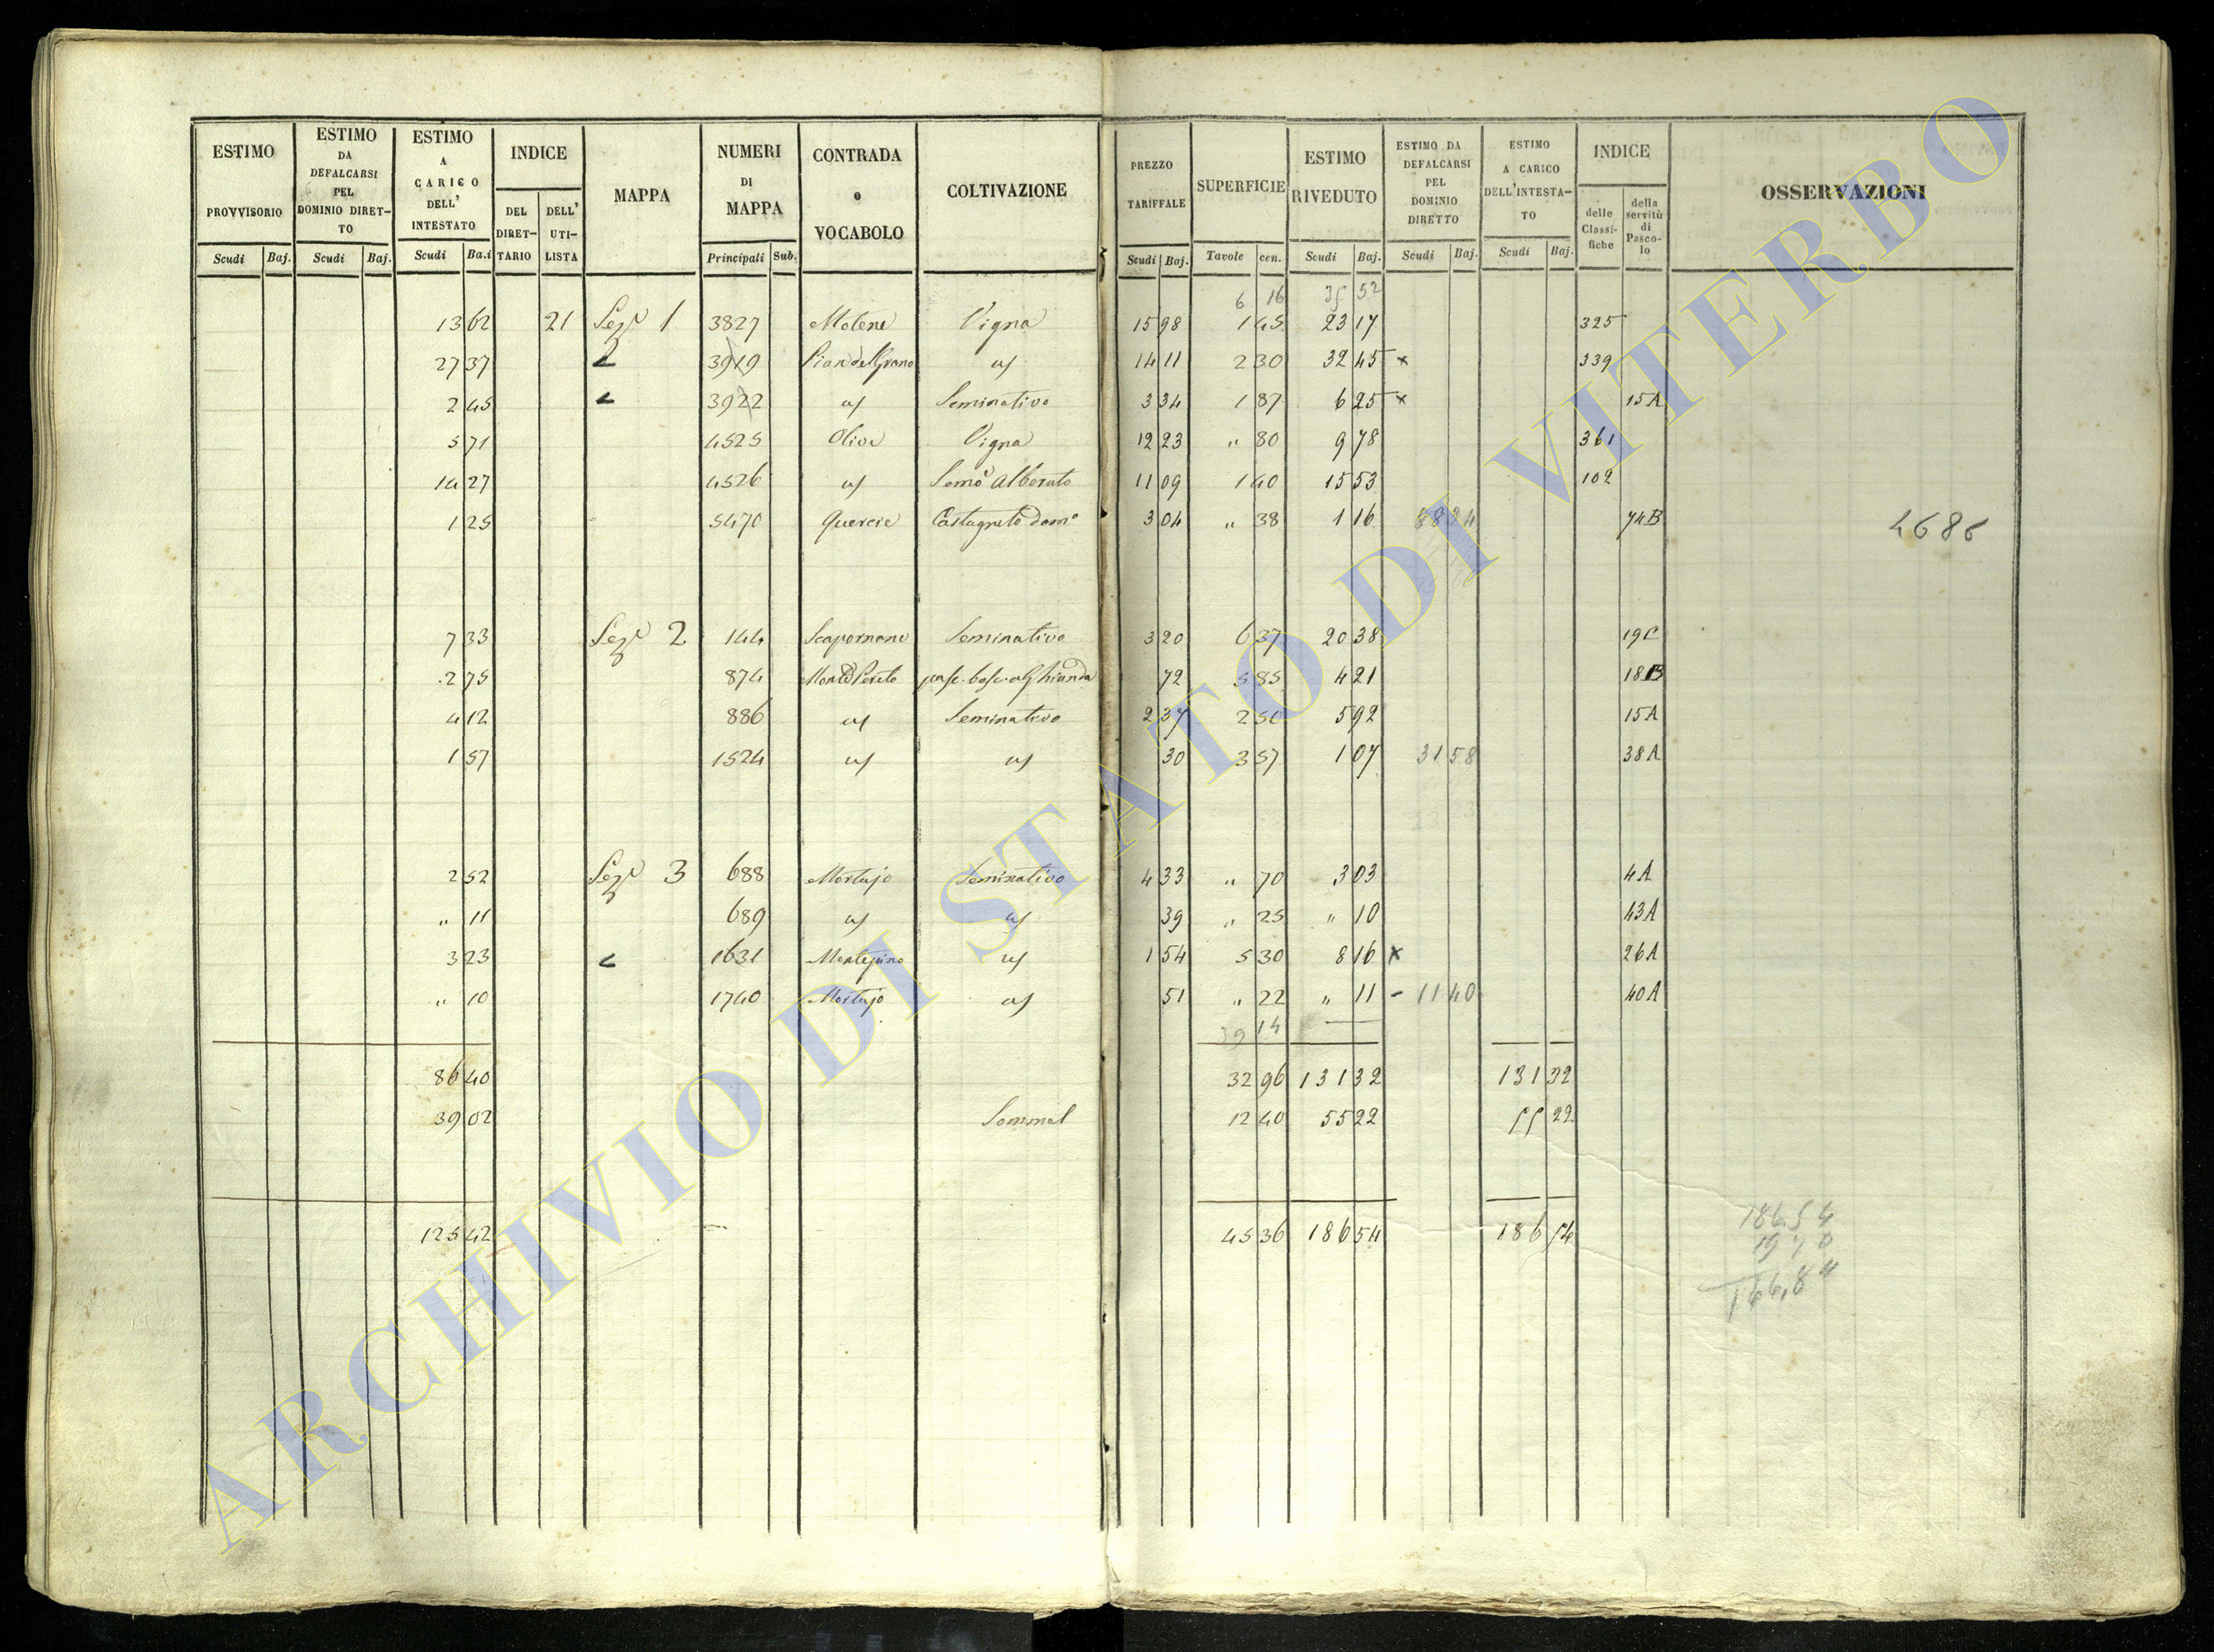 ESTIMO PROVVISORIO | ESTIMO DA DEFALCARSI PEL DOMINIO DIRET-TO | ESTIMO A CARICO DELL' INTESTATO | INDICE | MAPPA | NUMERI DI MAPPA | CONTRADA o VOCABOLO | COLTIVAZIONE | PREZZO TARIFFALE | SUPERFICIE | ESTIMO RIVEDUTO | ESTIMO DA DEFALCARSI PEL DOMINIO DIRETTO | ESTIMO A CARICO DELL'INTESTA-TO | INDICE | OSSERVAZIONI
DEL DIRET-TARIO | DELL' UTI-LISTA | delle Classi-fiche | della servitù di Pasco-lo
Scudi | Baj. | Scudi | Baj. | Scudi | Ba.i | Principali | Sub. | Scudi | Baj. | Tavole | cen. | Scudi | Baj. | Scudi | Baj. | Scudi | Baj.
6 16 | 35 52
13 62 | 21 | Seze 1 | 3827 | Molene | Vigna | 15 98 | 1 45 | 23 17 | 325
27 37 | 3919 | Pian del Grano | us | 14 11 | 2 30 | 32 45 x | 339
2 45 | 3922 | us | Seminativo | 3 34 | 1 87 | 6 25 x | 15A
5 71 | 4525 | Olive | Vigna | 12 23 | " 80 | 9 78 | 361
14 27 | 4526 | us | Semo Alberato | 11 09 | 1 40 | 15 53 | 102
1 25 | 5470 | Quercie | Castagneto dome | 3 04 | " 38 | 1 16 | 88 34 | 74B | 4686
7 33 | Seze 2 | 144 | Scapornano | Seminativo | 3 20 | 6 37 | 20 38 | 19C
2 75 | 874 | Monte Pereto | pasc. bosc. a Ghianda | 72 | 5 85 | 4 21 | 18B
4 12 | 886 | us | Seminativo | 2 37 | 2 50 | 5 92 | 15A
1 57 | 1524 | us | us | 30 | 3 57 | 1 07 | 31 58 | 38A
2 52 | Seze 3 | 688 | Mortajo | Seminativo | 4 33 | " 70 | 3 03 | 4A
" 11 | 689 | us | us | 39 | " 25 | " 10 | 43A
3 23 | 1631 | Montepino | us | 1 54 | 5 30 | 8 16 x | 26A
" 10 | 1740 | Mortajo | us | 51 | " 22 | " 11 - | 11 40 | 40A
39 14
86 40 | 32 96 | 131 32 | 131 32
39 02 | Sommal | 12 40 | 55 22 | 55 22
125 42 | 45 36 | 186 54 | 186 54
186.54
19 7
166,84
ARCHIVIO DI STATO DI VITERBO